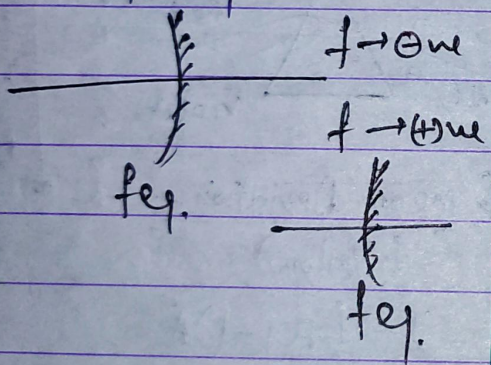 f → ⊖ve
f → (+)ve
feq.
feq.